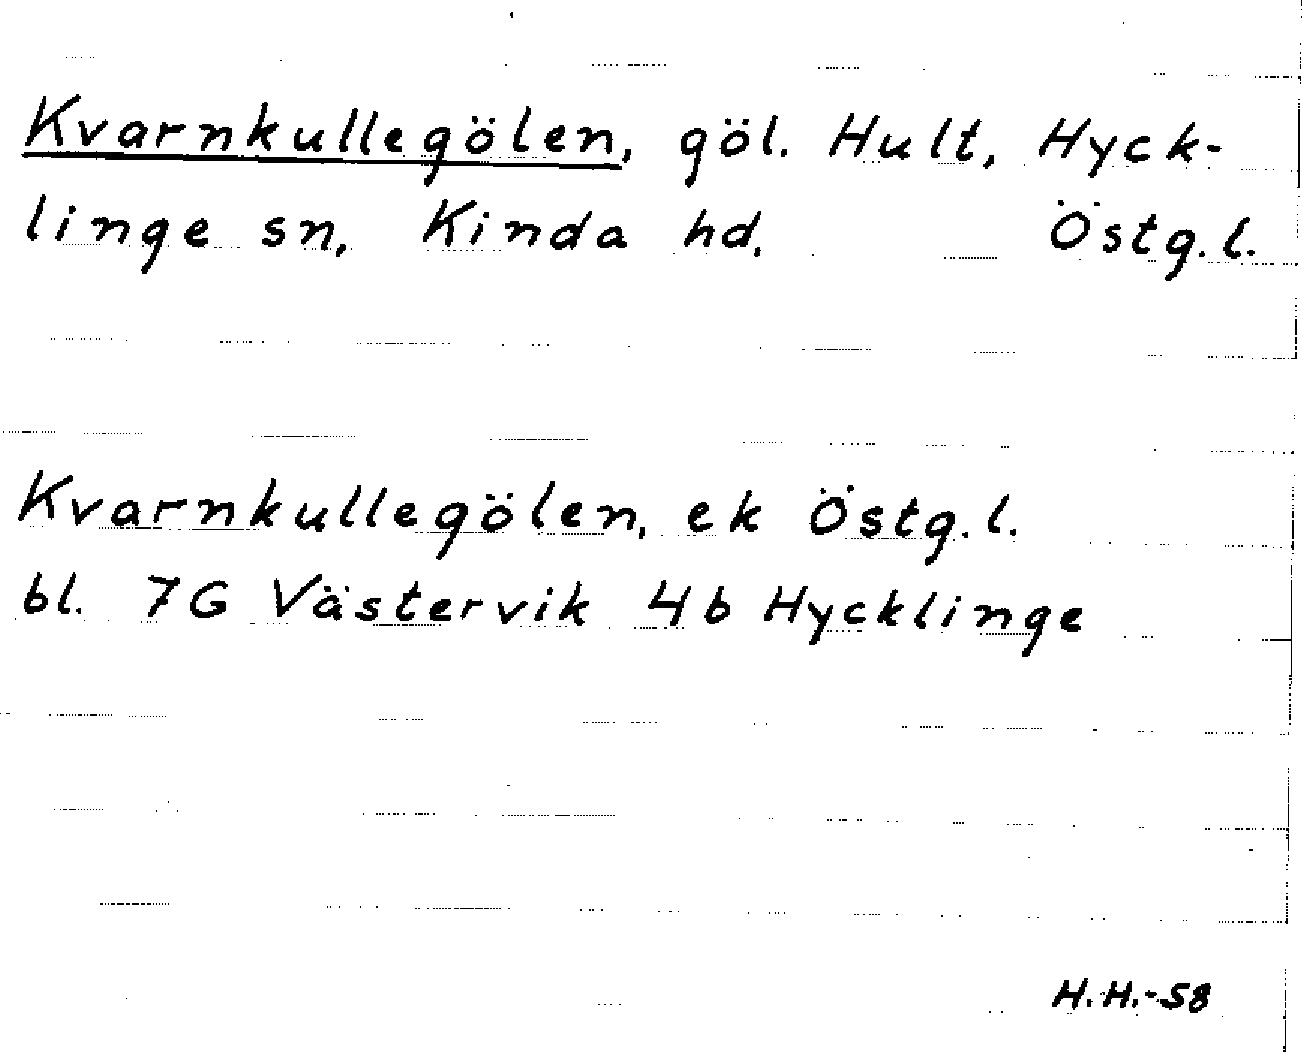 Kvarnkullegölen, göl. Hult, Hyck-
linge sn, Kinda hd. Östg.l.
Kvarnkullegölen, ek Östg.l.
bl. 7G Västervik 4b Hycklinge
H.H.-58